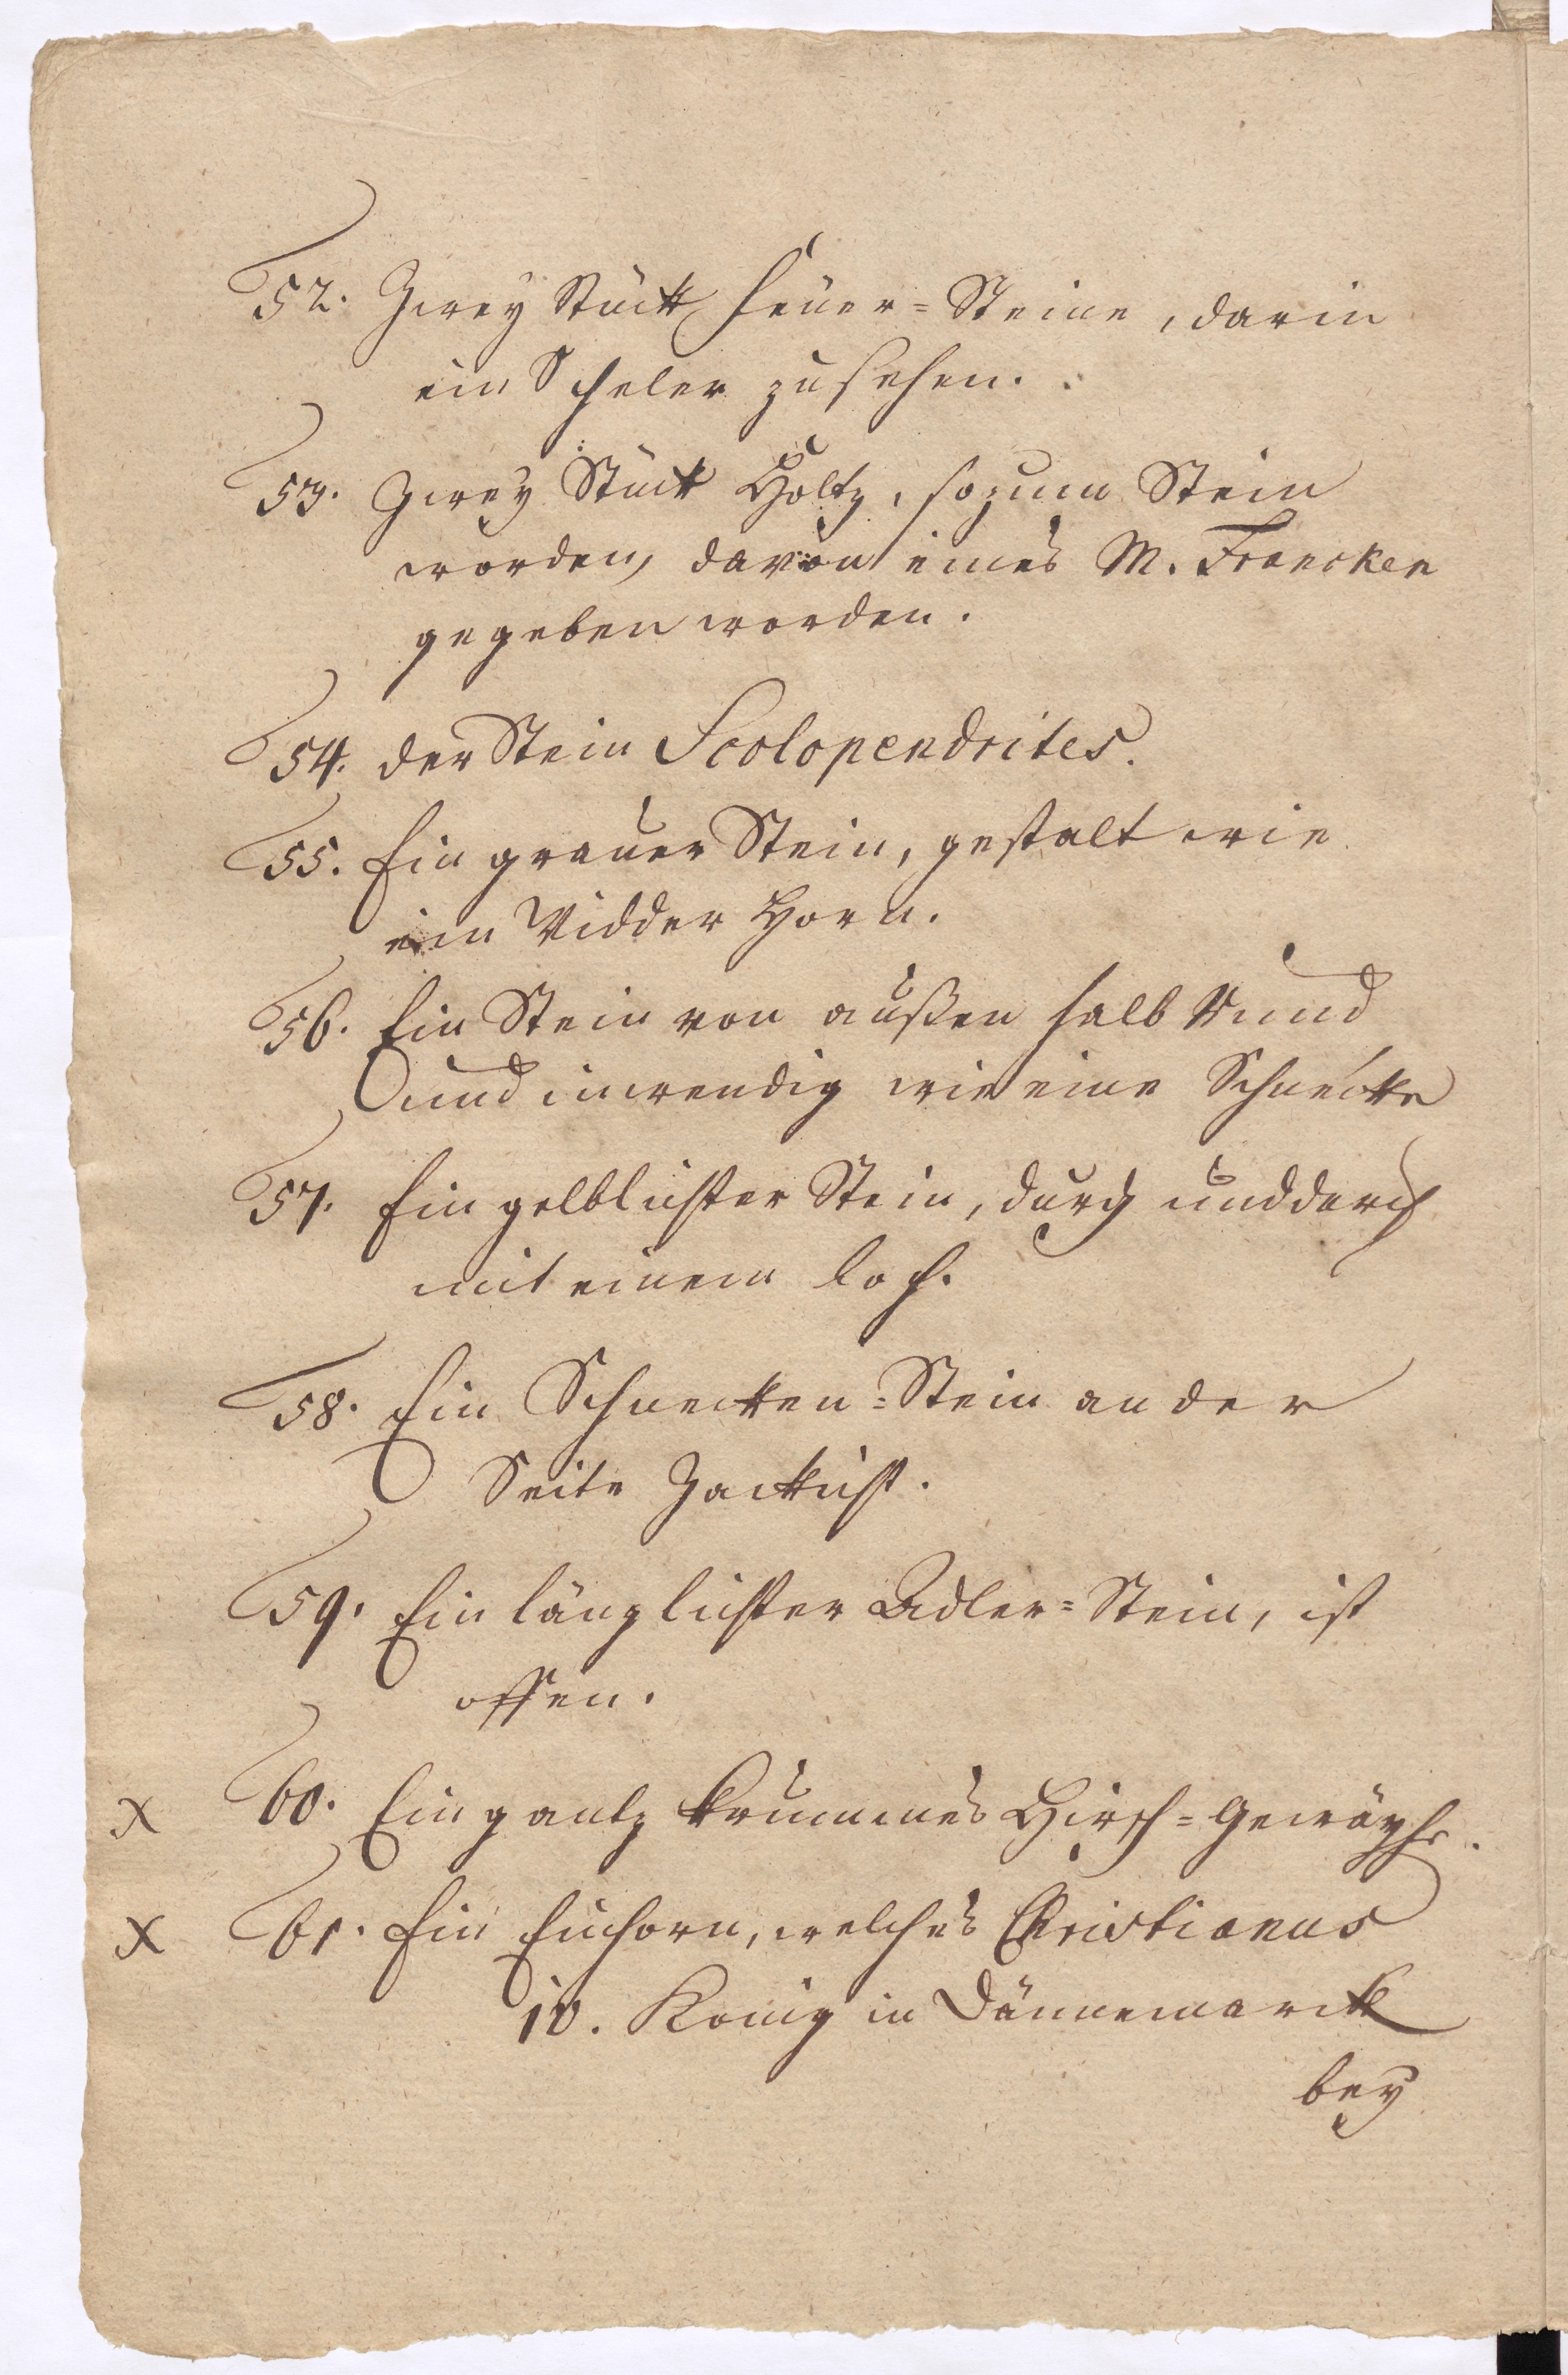 52. Zwey Stück Feüer=Steine, darin
ein Scheler zu sehen.
53. Zwey Stück Holtz, so zum Stein
worden, davon eines M. Francken
gegeben worden.
54. der Stein Scolopendrites.
55. Ein grauer Stein, gestalt wie
ein Widder Horn.
56. Ein Stein von außen halb Rund
und inwendig wie eine Schnecke
57. Ein gelblichter Stein, durch und durch
mit einem loch.
58. Ein Schnecken=Stein an der
Seite Zackicht.
59. Ein länglichter Adler=Stein, ist
offen.
X 60. Ein gantz krummes Hirsch=Geweyhe.
X 61. Ein Einhorn, welches Christianus
iv. König in Dännemarck
bey